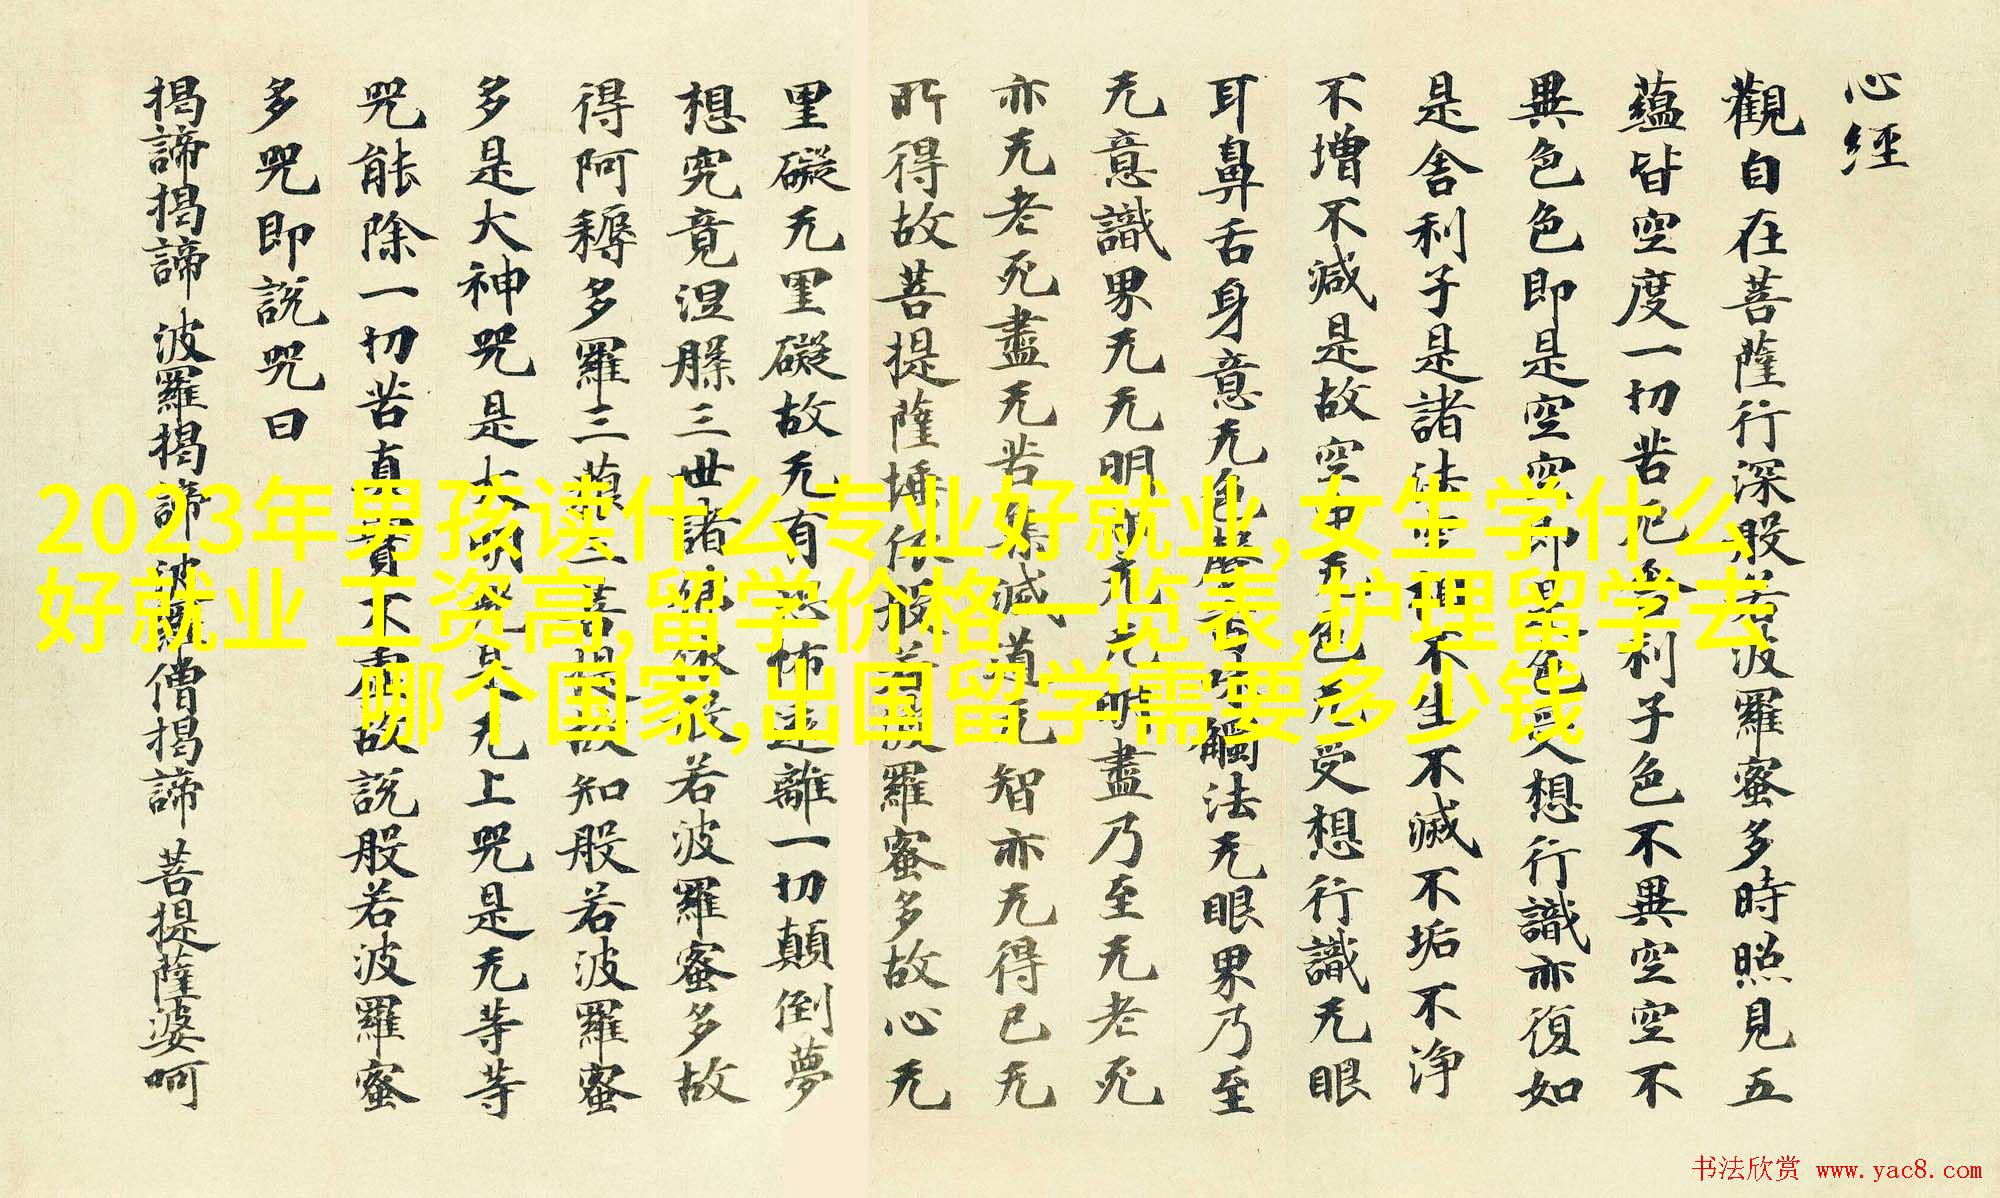 心經
觀自在菩薩行深般若波羅蜜多時照見五
蘊皆空度一切苦厄舍利子色不異空空不
異色色即是空空即是色受想行識亦復如
是舍利子是諸法空相不生不滅不垢不浄
不增不減是故空中无色无受想行識无眼
耳鼻舌身意无色聲香味觸法无眼界乃至
无意識界无无明亦无无明盡乃至无老死
亦无老死盡无苦集滅道无智亦无得已无
所得故菩提薩埵依般若波羅蜜多故心无
罣礙无罣礙故无有恐怖遠離一切顛倒夢
想究竟涅槃三世諸佛依般若波羅蜜多故
得阿耨多羅三藐三菩提故知般若波羅蜜
多是大神咒是大明咒是无上咒是无等等
咒能除一切苦真實不虛故說般若波羅蜜
多咒即說咒曰
揭諦揭諦 波羅揭諦 波羅僧揭諦 菩提薩婆呵
2023年男孩读什么专业好就业,女生学什么
好就业 工资高,留学价格一览表,护理留学去
哪个国家,出国留学需要多少钱
书法欣赏 www.yac8.com